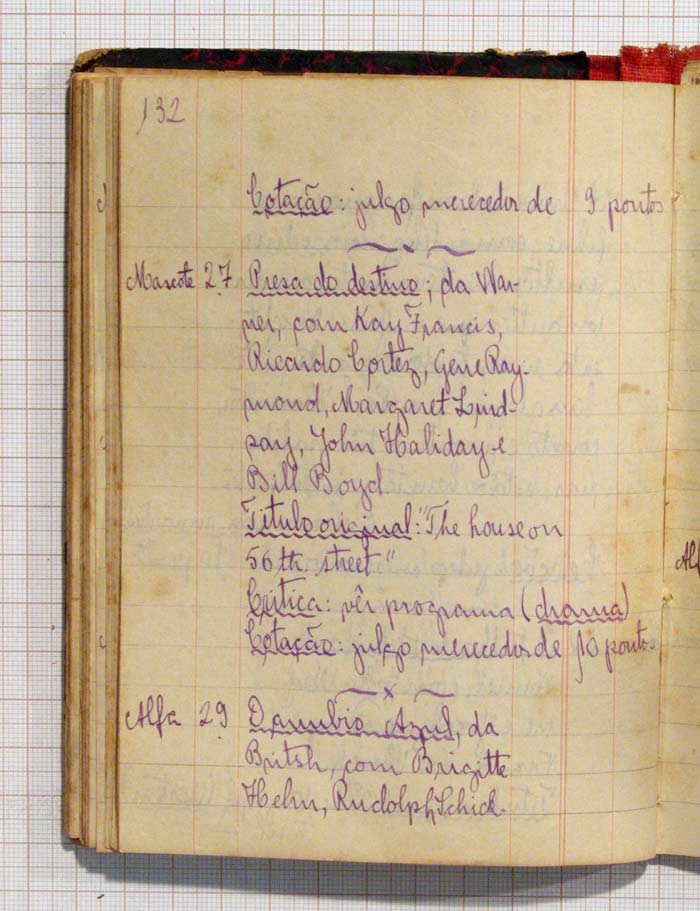 132
Cotação: julgo merecedor de 9 pontos
Mascote 27 Presa do destino; da War-
ner, com Kay Francis,
Ricardo Cortez, Gene Ray-
mond, Margaret Lind-
say, John Haliday e
Bill Boyd
Titulo original: "The house on
56th street"
Critica: vêr programa (drama)
Cotação: julgo merecedor de 10 pontos
Alfa 29 Danubio Azul, da
Britsh, com Brigitte
Helm, Rudolph Schick-
Alf